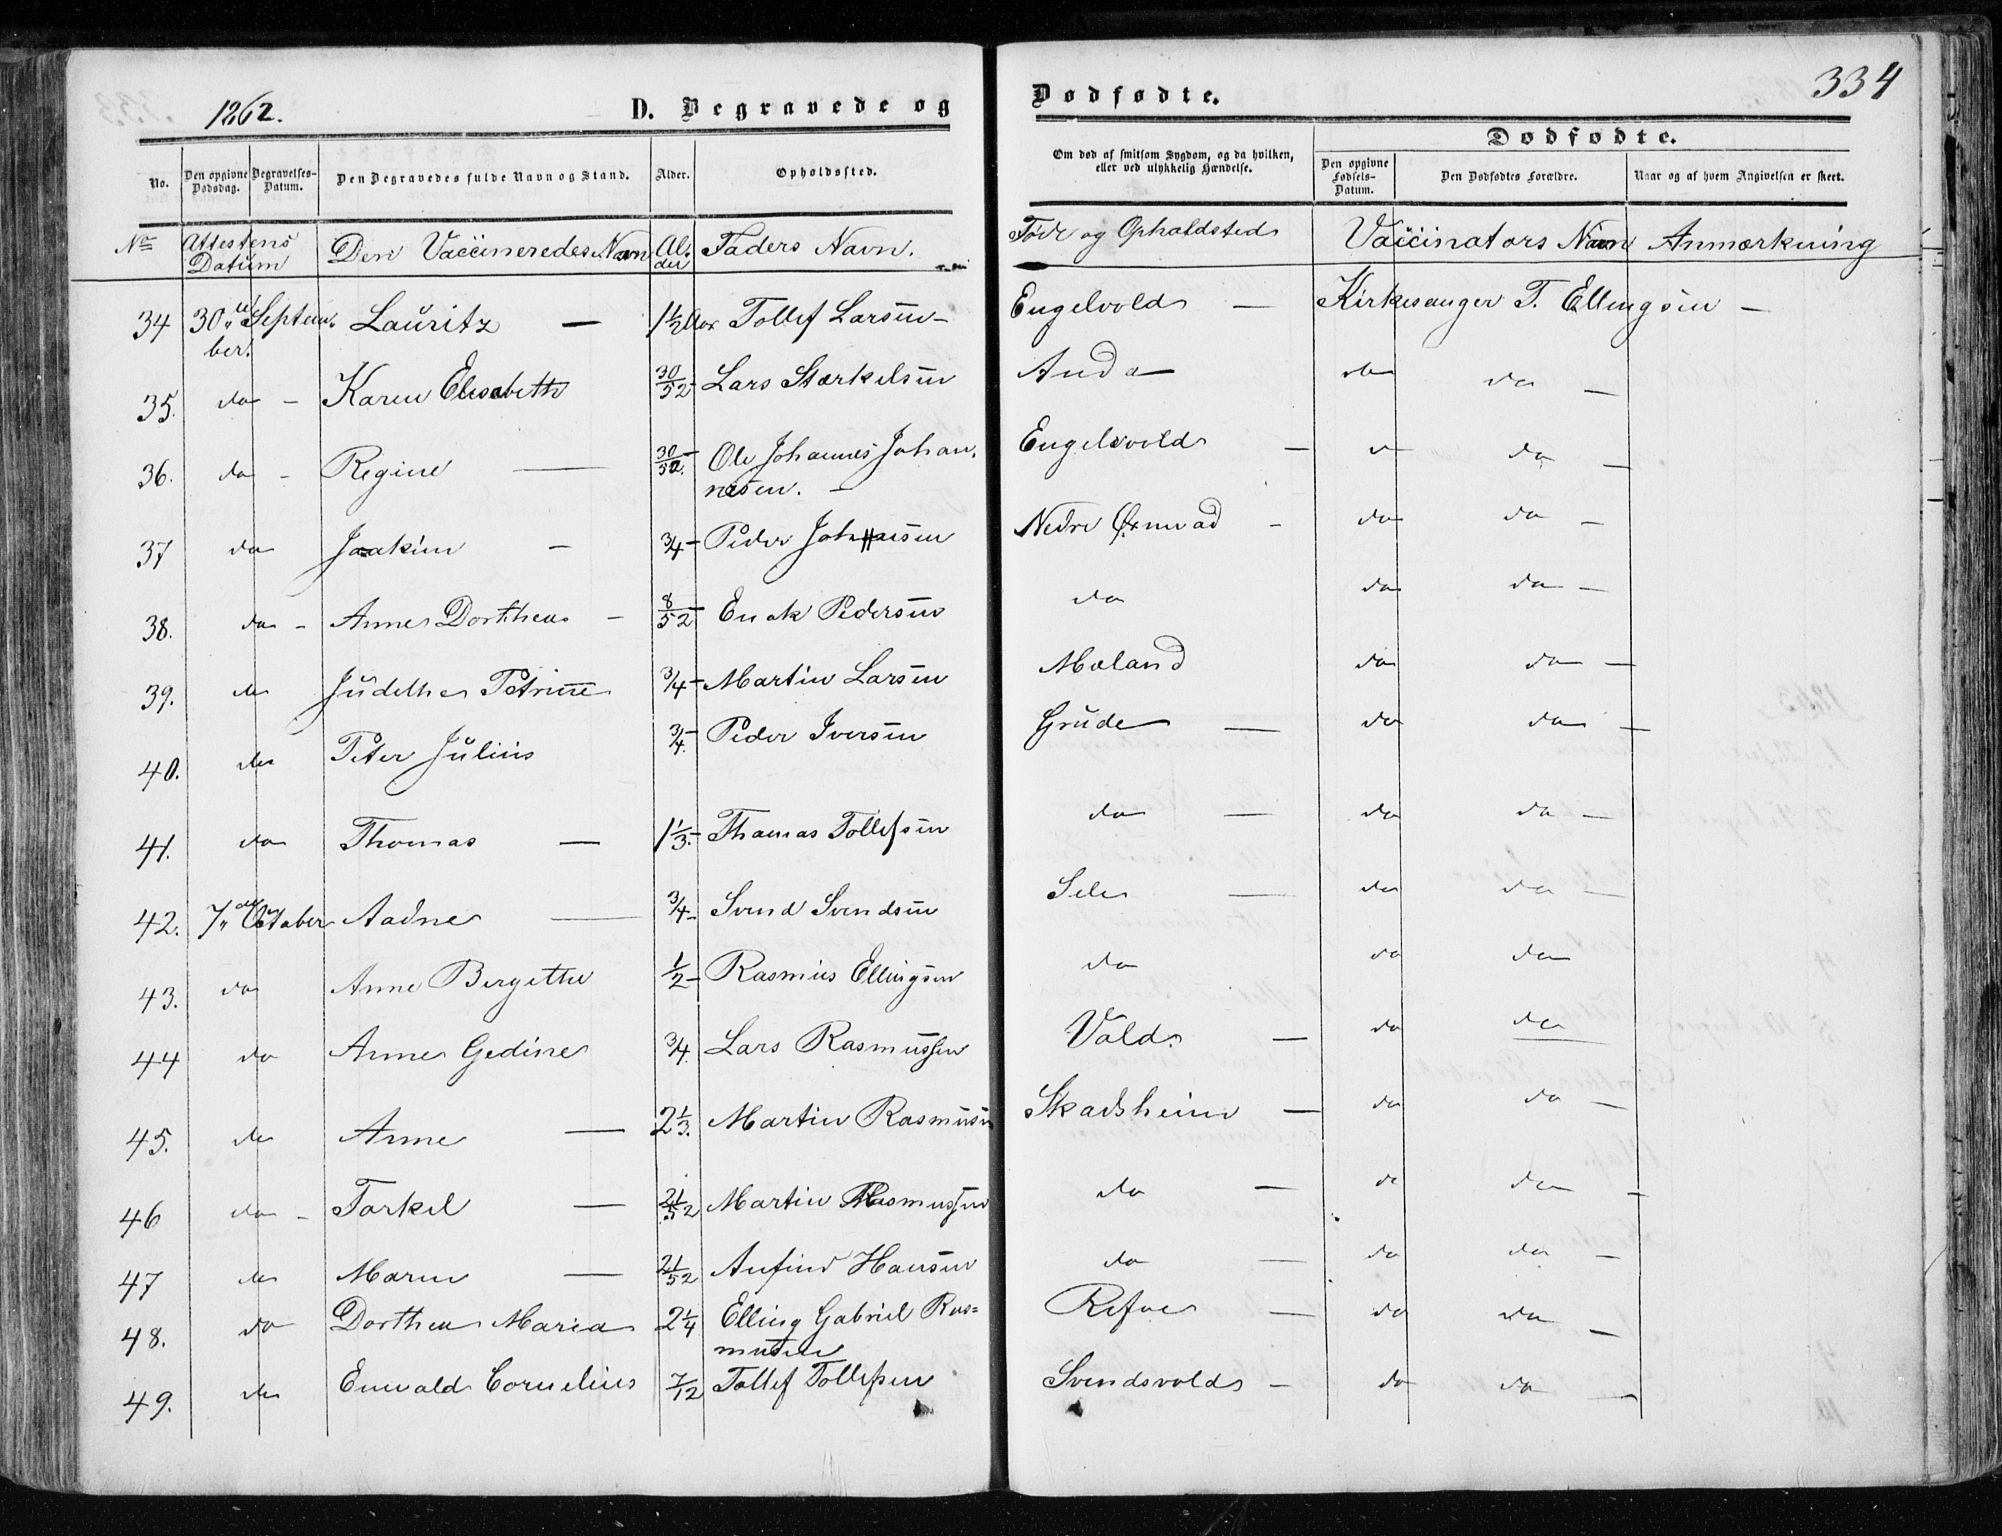 334
1862.
D. Begravede og Dødfødte.
Dødfødte.
No. Den opgivne Dødsdag. Begravelses-Datum. Den Begravedes fulde Navn og Stand. Alder. Opholdssted. Om død af smitsom Sygdom, og da hvilken, eller ved ulykkelig Hændelse. Den opgivne Fødsels-Datum. Den Dødfødtes Forældre. Naar og af hvem Angivelsen er skeet.
No Attestens Datum Den Vaccineredes Navn Alder Faders Navn. Føde og Opholdsted Vaccinators Navn Anmærkning
34 30te September. Lauritz — 1 1/2 Aar Tollef Larsen — Engelvold — Kirkesanger T. Ellingsen —
35. do — Karen Elisabeth 30/52 — Lars Stærkelsen Anda — do do —
36. do — Regine — 30/52. — Ole Johannes Johannesen. — Engelsvold — do —
37 do Joakim — 3/4 — Peder Johnsen Nedre Øxnevad — do do —
38. do — Anne Dorthea — 8/52 — Enok Pedersen do do do —
39. do Judithe Petrine 3/4 — Martin Larsen Mæland do do —
40. do Peter Julius 3/4. — Peder Iversen Grude — do do —
41. do Thomas — 1 1/3. — Thomas Tollefsen do — do do —
42. 7de October Aadne — 3/4 — Svend Svendsen Sele — do do —
43. do Anne Bergitte 1/2 — Rasmus Ellingsen do do do
44 do Anne Gedine 3/4. Lars Rasmussen Vold. — do do
45. do Anne — 2 1/3. Martin Rasmusen Skadsheim — do do —
46 do — Torkel — 21/52 Martin Rasmussen do — do do —
47 do Maren — 21/52 Anfind Hansen do — do do —
48. do Dorthea Maria 2 1/4 Elling Gabriel Rasmusen Refve — do do —
49. do Enevald Cornelius 7/12 Tollef Tollefsen Svendsvold — do do —